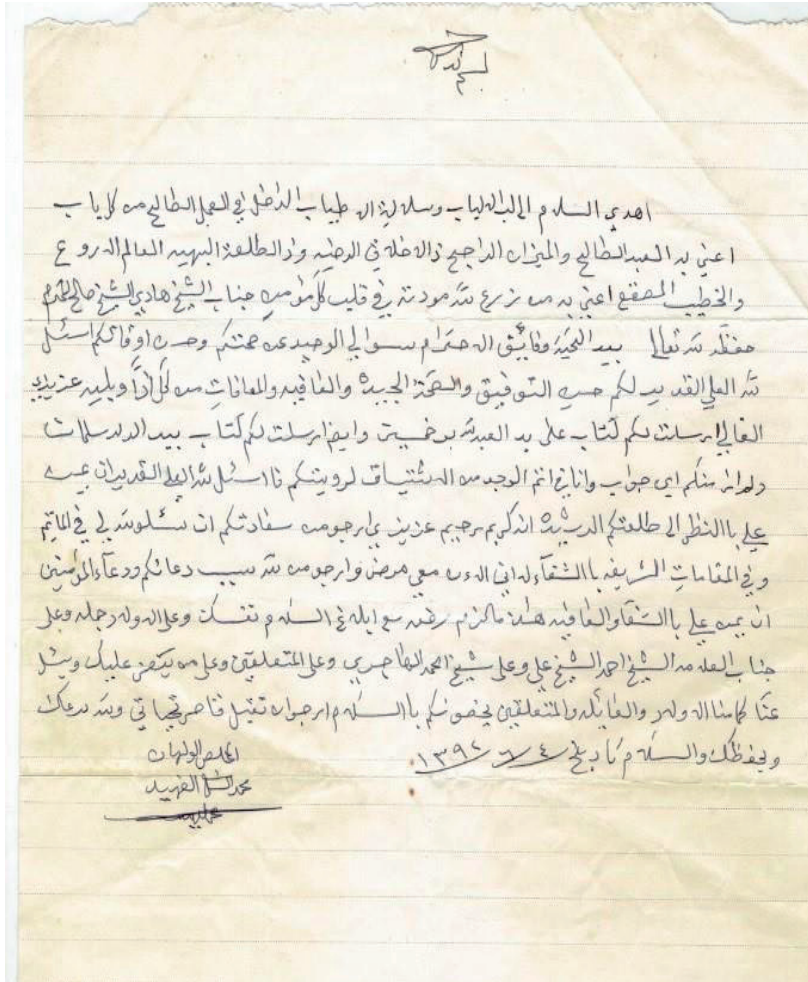 اهدي السلام الى لب الالباب وسلالة الاطياب الداخل في العمل الصالح من كل باب
اعني به العبد الصالح والميزان الراجح ذالاخلاق الرضيه وذالطلعة البهيه العالم الاروع
والخطيب المصقع اعني به من زرع الله مودته في قليب كل مؤمن جناب الشيخ هادي الشيخ صالح المحترم
حفظه الله تعالى بعد التحية وفائق الاحترام سوالي الوحيد عن صحتكم وحسن اوقاتكم اسئل
الله العلي القدير لكم حسن التوفيق والصحة الجيده والعافيه والمعافات من كل اذا وبليه عزيزي
الغالي ارسلت لكم كتاب على يد العبد الله بوخمسين وايضا ارسلت لكم كتاب بيد
ولم ار منكم اي جواب وانا في اتم الوجد من الاشتياق لرويتكم فا اسئل الله العلي القدير ان يمن
علي باالنظر الى طلعتكم الرشيده انه كريم رحيم عزيزي ارجو من سعادتكم ان تسئلو الله لي في الماتم
وفي المقامات الشريفه باالشفآء لاني الاىن معي مرض وارجو من الله بسبب دعائكم ودعآء المؤمنين
ان يمن علي باالشفآ والعافيه هذا مالزم رفعه مع ابلاغ السلام نفسك وعلى الاولاد جمله وعلى
جناب العلامه الشيخ احمد الشيخ علي وعلى شيخ احمد وعلى المتعلقين وعلى من يعز عليك ويسئل
عنا كما منا الاولاد والعائله والمتعلقين يخصونكم باالسلام ارجو ان تقبل قاصر تحياتي والله يرعاك
ويحفظك والسلام تاريخ ٤/٦/١٣٩٢
المخلص الولهان
محمد